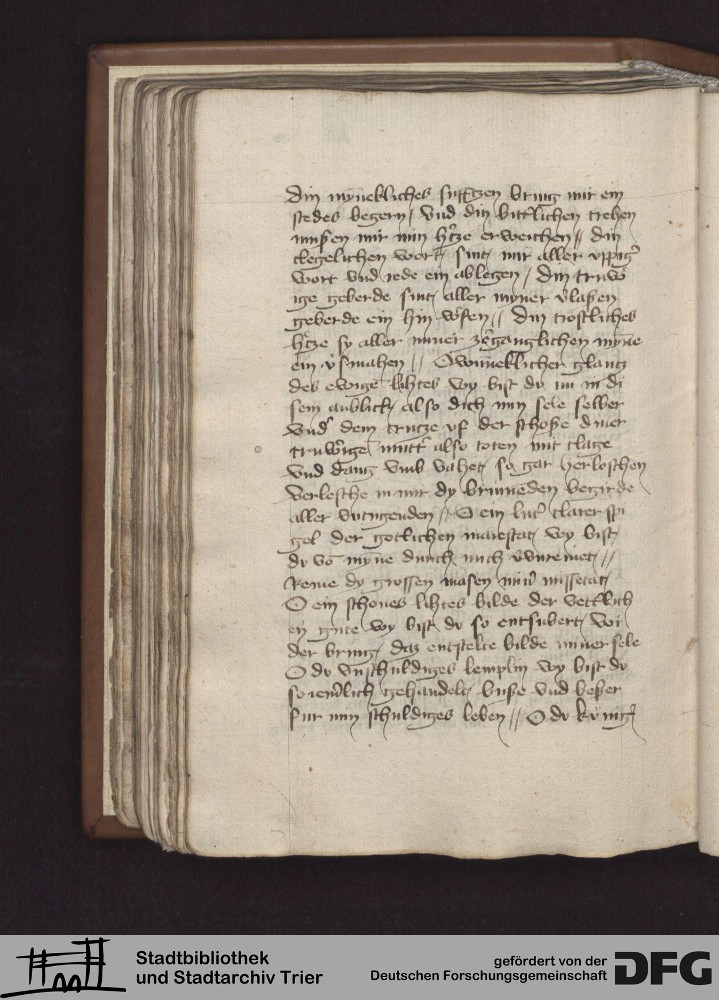 Din mynekliches suftzen bring mir ein
stedes begern / vnd din bitterlichen trehen
mußen mir min hertze erweichen // din
clegelichen wort sint mir aller vppig
wort vnd rede ein ablegen / Din truw
ige geberde sint aller myner vlaßen
geberde ein hin werfen // Din trostliches
hertze sy aller miner zerganglichen myne
ein vsmahen // O wuneklicher glantz
des ewige lihtes wy bist dv nu in di
sem anblick / also dich min sele selber
vnder dem crutze vf der schoße diner
truwrige muter also toten mit clage
vnd dang vmb vahet so gar verloschen
verlesche in mir dy brinneden begirde
aller vntugenden // O ein luter clarer spi
gel der gotlichen maiestat wy bist
dv vo myne durch mich verunreinet //
Reine dy grossen masen miner missetat
O ein schones lihtes bilde der vetterlich
en gute wy bist dv so entsubert
der bring daz entstelte bilde miner sele
O dv vnschuldiges lemplin wy bist dv
so iemerlich gehandelt buße vnd beßer
fur min schuldiges leben // O dv kunig
Stadtbibliothek
und Stadtarchiv Trier
gefördert von der
Deutschen Forschungsgemeinschaft
DFG